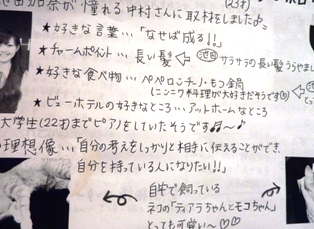 加奈が憧れる中村さんに取材をしました♪
★好きな言葉…「なせば成る!!」
★チャームポイント…長い髪 ← 池田 サラサラの長い髪うらやまし
★好きな食べ物…ペペロンチーノ・もつ鍋
(ニンニク料理が大好きだそうです)
★ビューホテルの好きなところ…アットホームなところ
大学生(22才)までピアノをしていたそうです♫〜♪
理想像…「自分の考えをしっかりと相手に伝えることができ
自分を持っている人になりたい!!」
自宅で飼っている
ネコの「ティアラちゃんとモコちゃん」
とっても可愛い〜♡♡